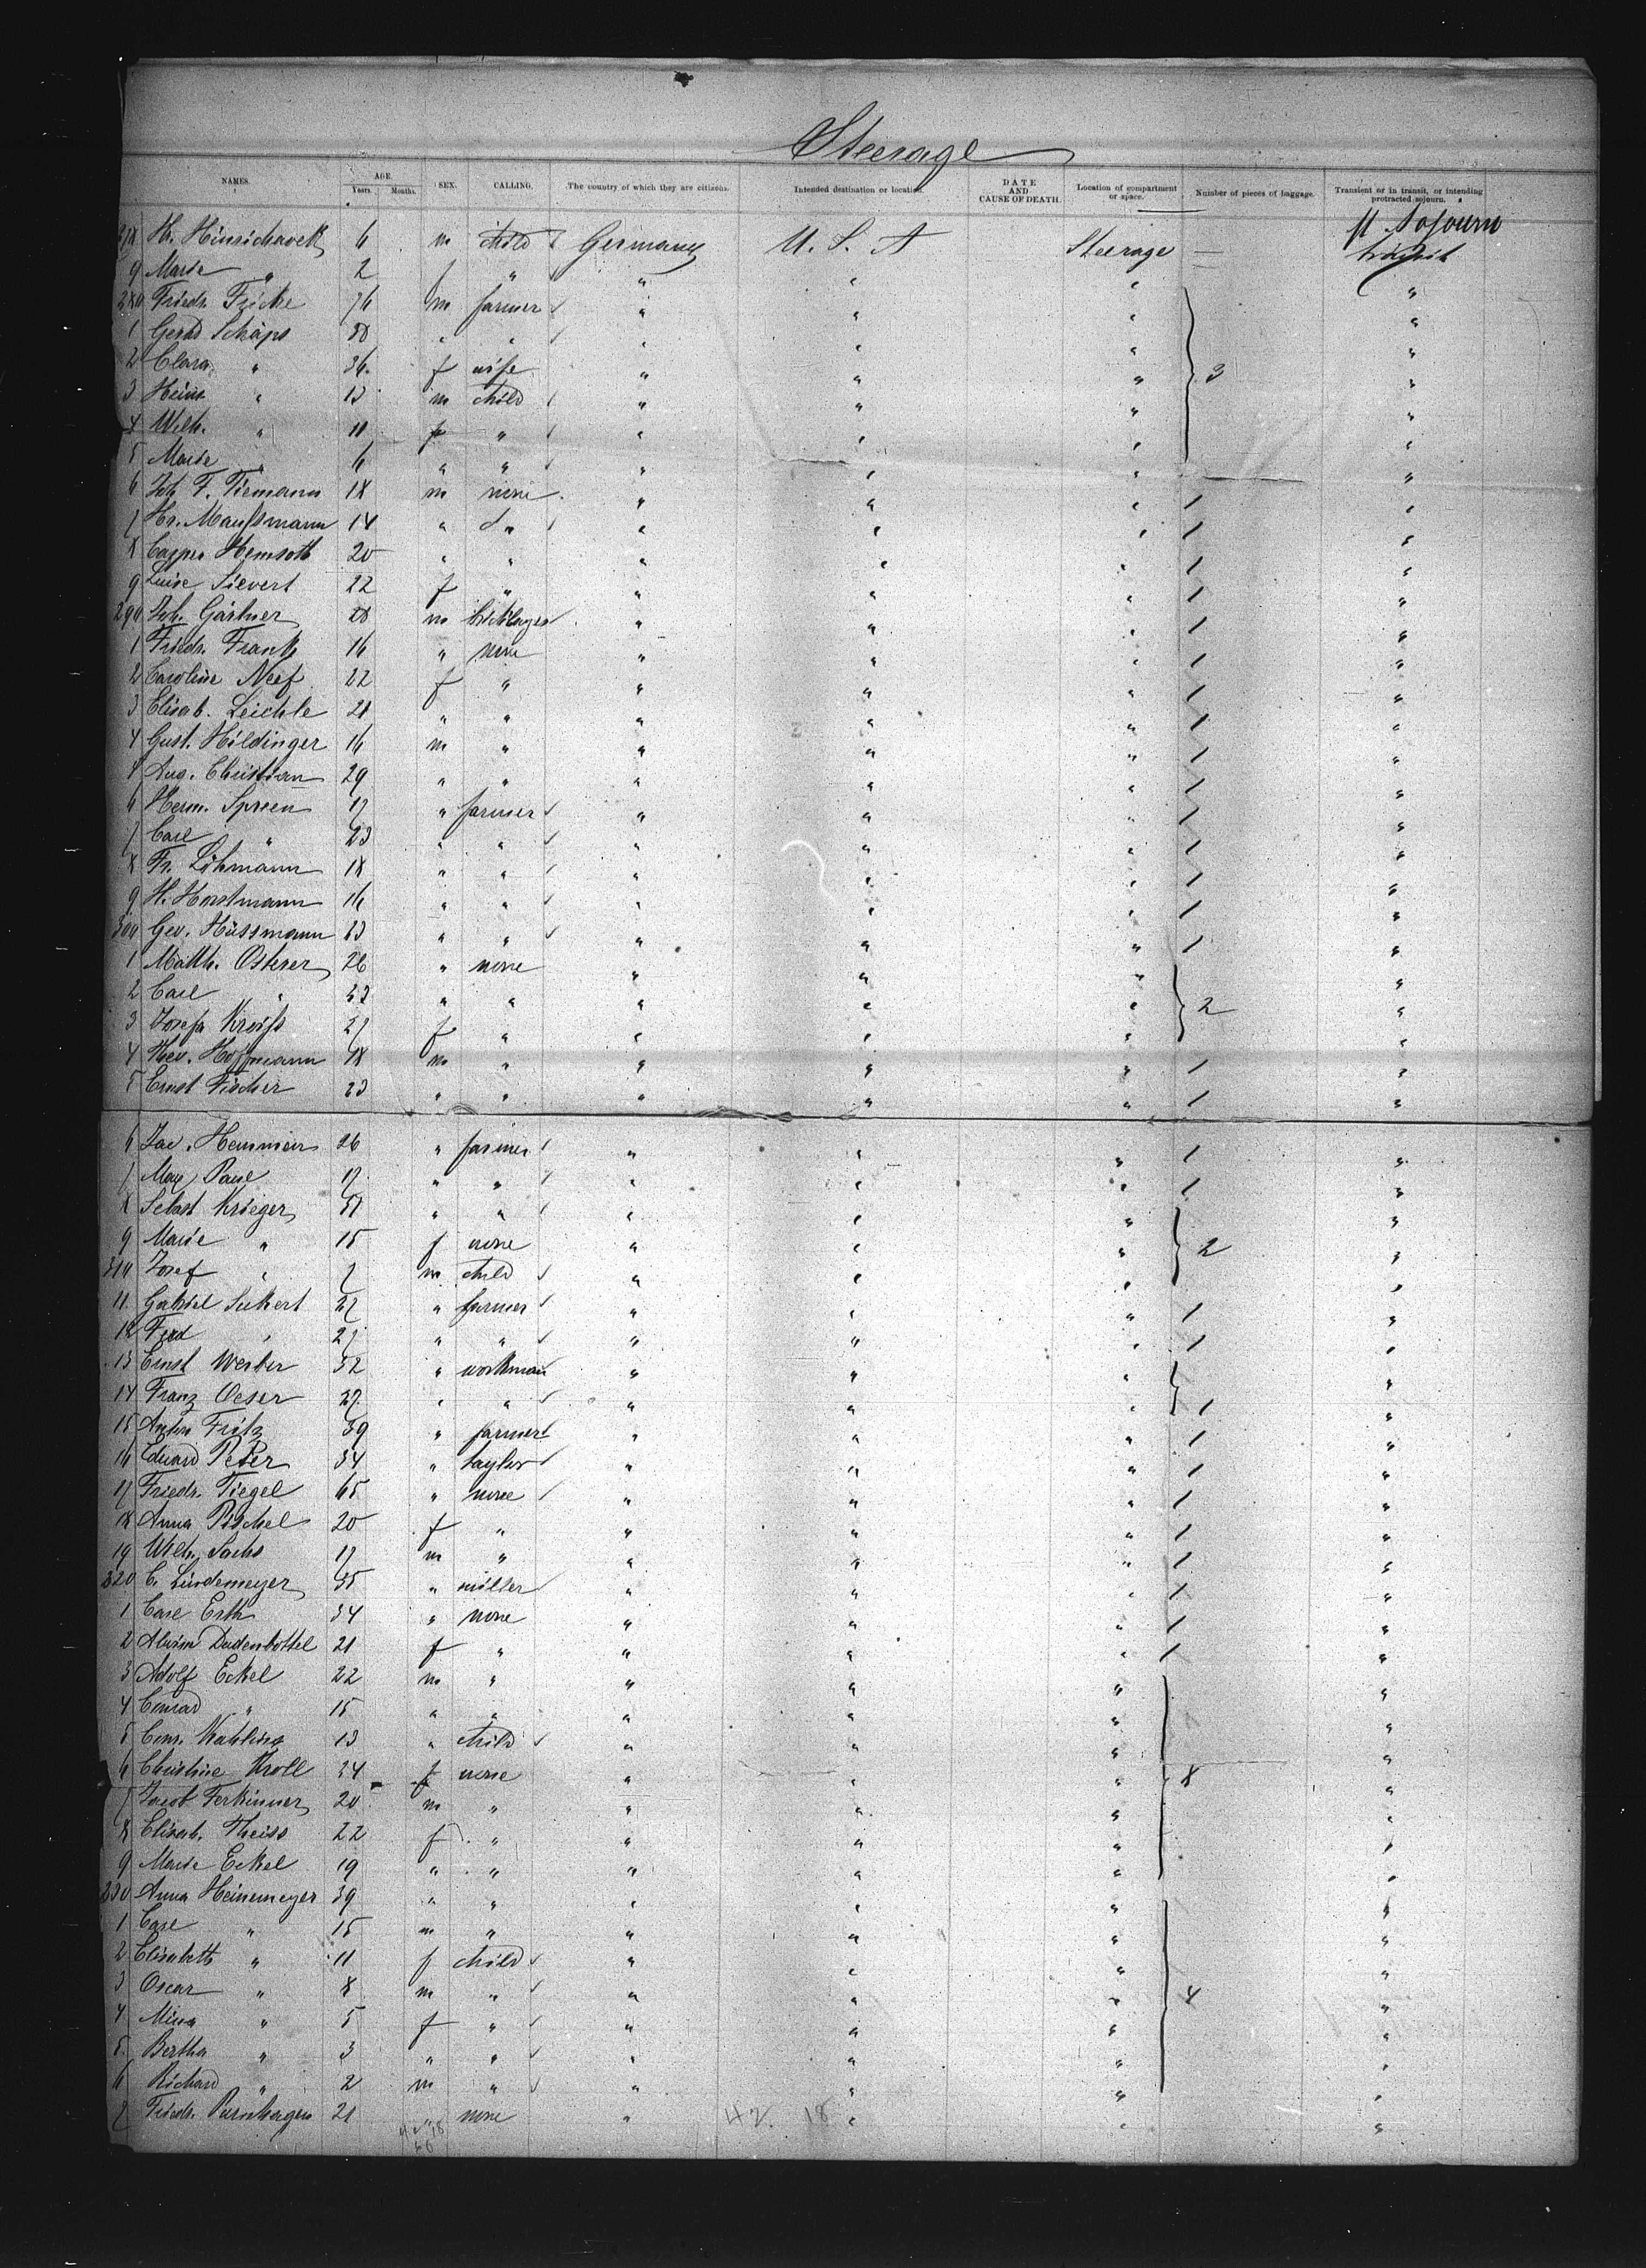 Steerage
NAMES. AGE. Years. Months. SEX. CALLING. The country of which they are citizens. Intended destination or location. DATE AND CAUSE OF DEATH. Location of compartment or space. Number of pieces of baggage. Transient or in transit, or intending protracted sojourn.
sojourn
278 Hr. 6 m child Germany U. S. A Steerage — transit
9 Marie " 2 f " " " " — "
280 Friedr. Fricke 76 m farmer " " " "
1 Gerhd Schäps 38 " " " " " "
2 Clara " 36 f wife " " " 3 "
3 Heinr. " 13 m child " " " "
4 Wilh. " 11 " " " " "
5 Marie " 6 " " " " " "
6 Joh. F. Tiemann 18 m none " " " 1 "
7 Hr. Maussmann 14 " do " " " 1 "
8 Casper Hemsoth 20 " " " " " 1 "
9 Luise Sievert 22 f " " " " 1 "
290 Joh. Gärtner 28 m bricklayer " " " 1 "
1 Friedr. Frank 16 " none " " " 1 "
2 Caroline Neef 22 f " " " " 1 "
3 Elisab. Leichle 21 " " " " " 1 "
4 Gust. Hildinger 16 m " " " " 1 "
5 Aug. Christian 29 " " " " " 1 "
6 Herm. Spreen 17 " farmer " " " 1 "
7 Carl " 23 " " " " " 1 "
8 Fr. Löhmann 18 " " " " " 1 "
9 H. Horstmann 16 " " " " " 1 "
300 Geo. Hüssmann 23 " " " " " 1 "
1 Matth. Osterer 26 " none " " " "
2 Carl " 23 " " " " " 2 "
3 Josefa Kroiss 27 f " " " " "
4 Theo. Hoffmann 18 m " " " " 1 "
5 Ernst Fischer 23 " " " " " 1 "
6 Jac. Hemmier 26 " farmer " " " 1 "
7 Max Paul 17 " " " " " 1 "
8 Sebast Krieger 51 " " " " " "
9 Marie " 15 f none " " " 2 "
310 Josef " 7 m child " " " "
11 Gabriel Seikert 27 " farmer " " " 1 "
12 Ferd " 27 " " " " " 1 "
13 Ernst Werber 32 " workman " " " "
14 Franz Oeser 27 " " " " " 1 "
15 Anton Fritz 39 " farmer " " " 1 "
16 Eduard Peter 34 " taylor " " " 1 "
17 Friedr. Tiegel 65 " none " " " 1 "
18 Anna Pischel 20 f " " " " 1 "
19 Wilh. Sachs 17 m " " " " 1 "
320 C. Lindemeyer 35 " miller " " " 1 "
1 Carl Erth 34 " none " " " 1 "
2 Alwin Dudenbottel 21 f " " " " 1 "
3 Adolf Eckel 22 m " " " " "
4 Conrad " 15 " " " " " "
5 Conr. Wahling 13 " child " " " "
6 Christine Kroll 24 f none " " " 8 "
7 Jacob Ferkinner 20 m " " " " "
8 Elisab. Theiss 22 f " " " " "
9 Marie Eckel 19 " " " " " "
330 Anna Heinemeyer 39 " " " " " "
1 Carl " 15 m " " " " "
2 Elisabeth " 11 f child " " " "
3 Oscar " 8 m " " " " 4 "
4 Mina " 5 f " " " " "
5 Bertha " 3 " " " " " "
6 Richard " 2 m " " " " "
7 Friedr. Pürnhagen 21 " none " " " "
42 18